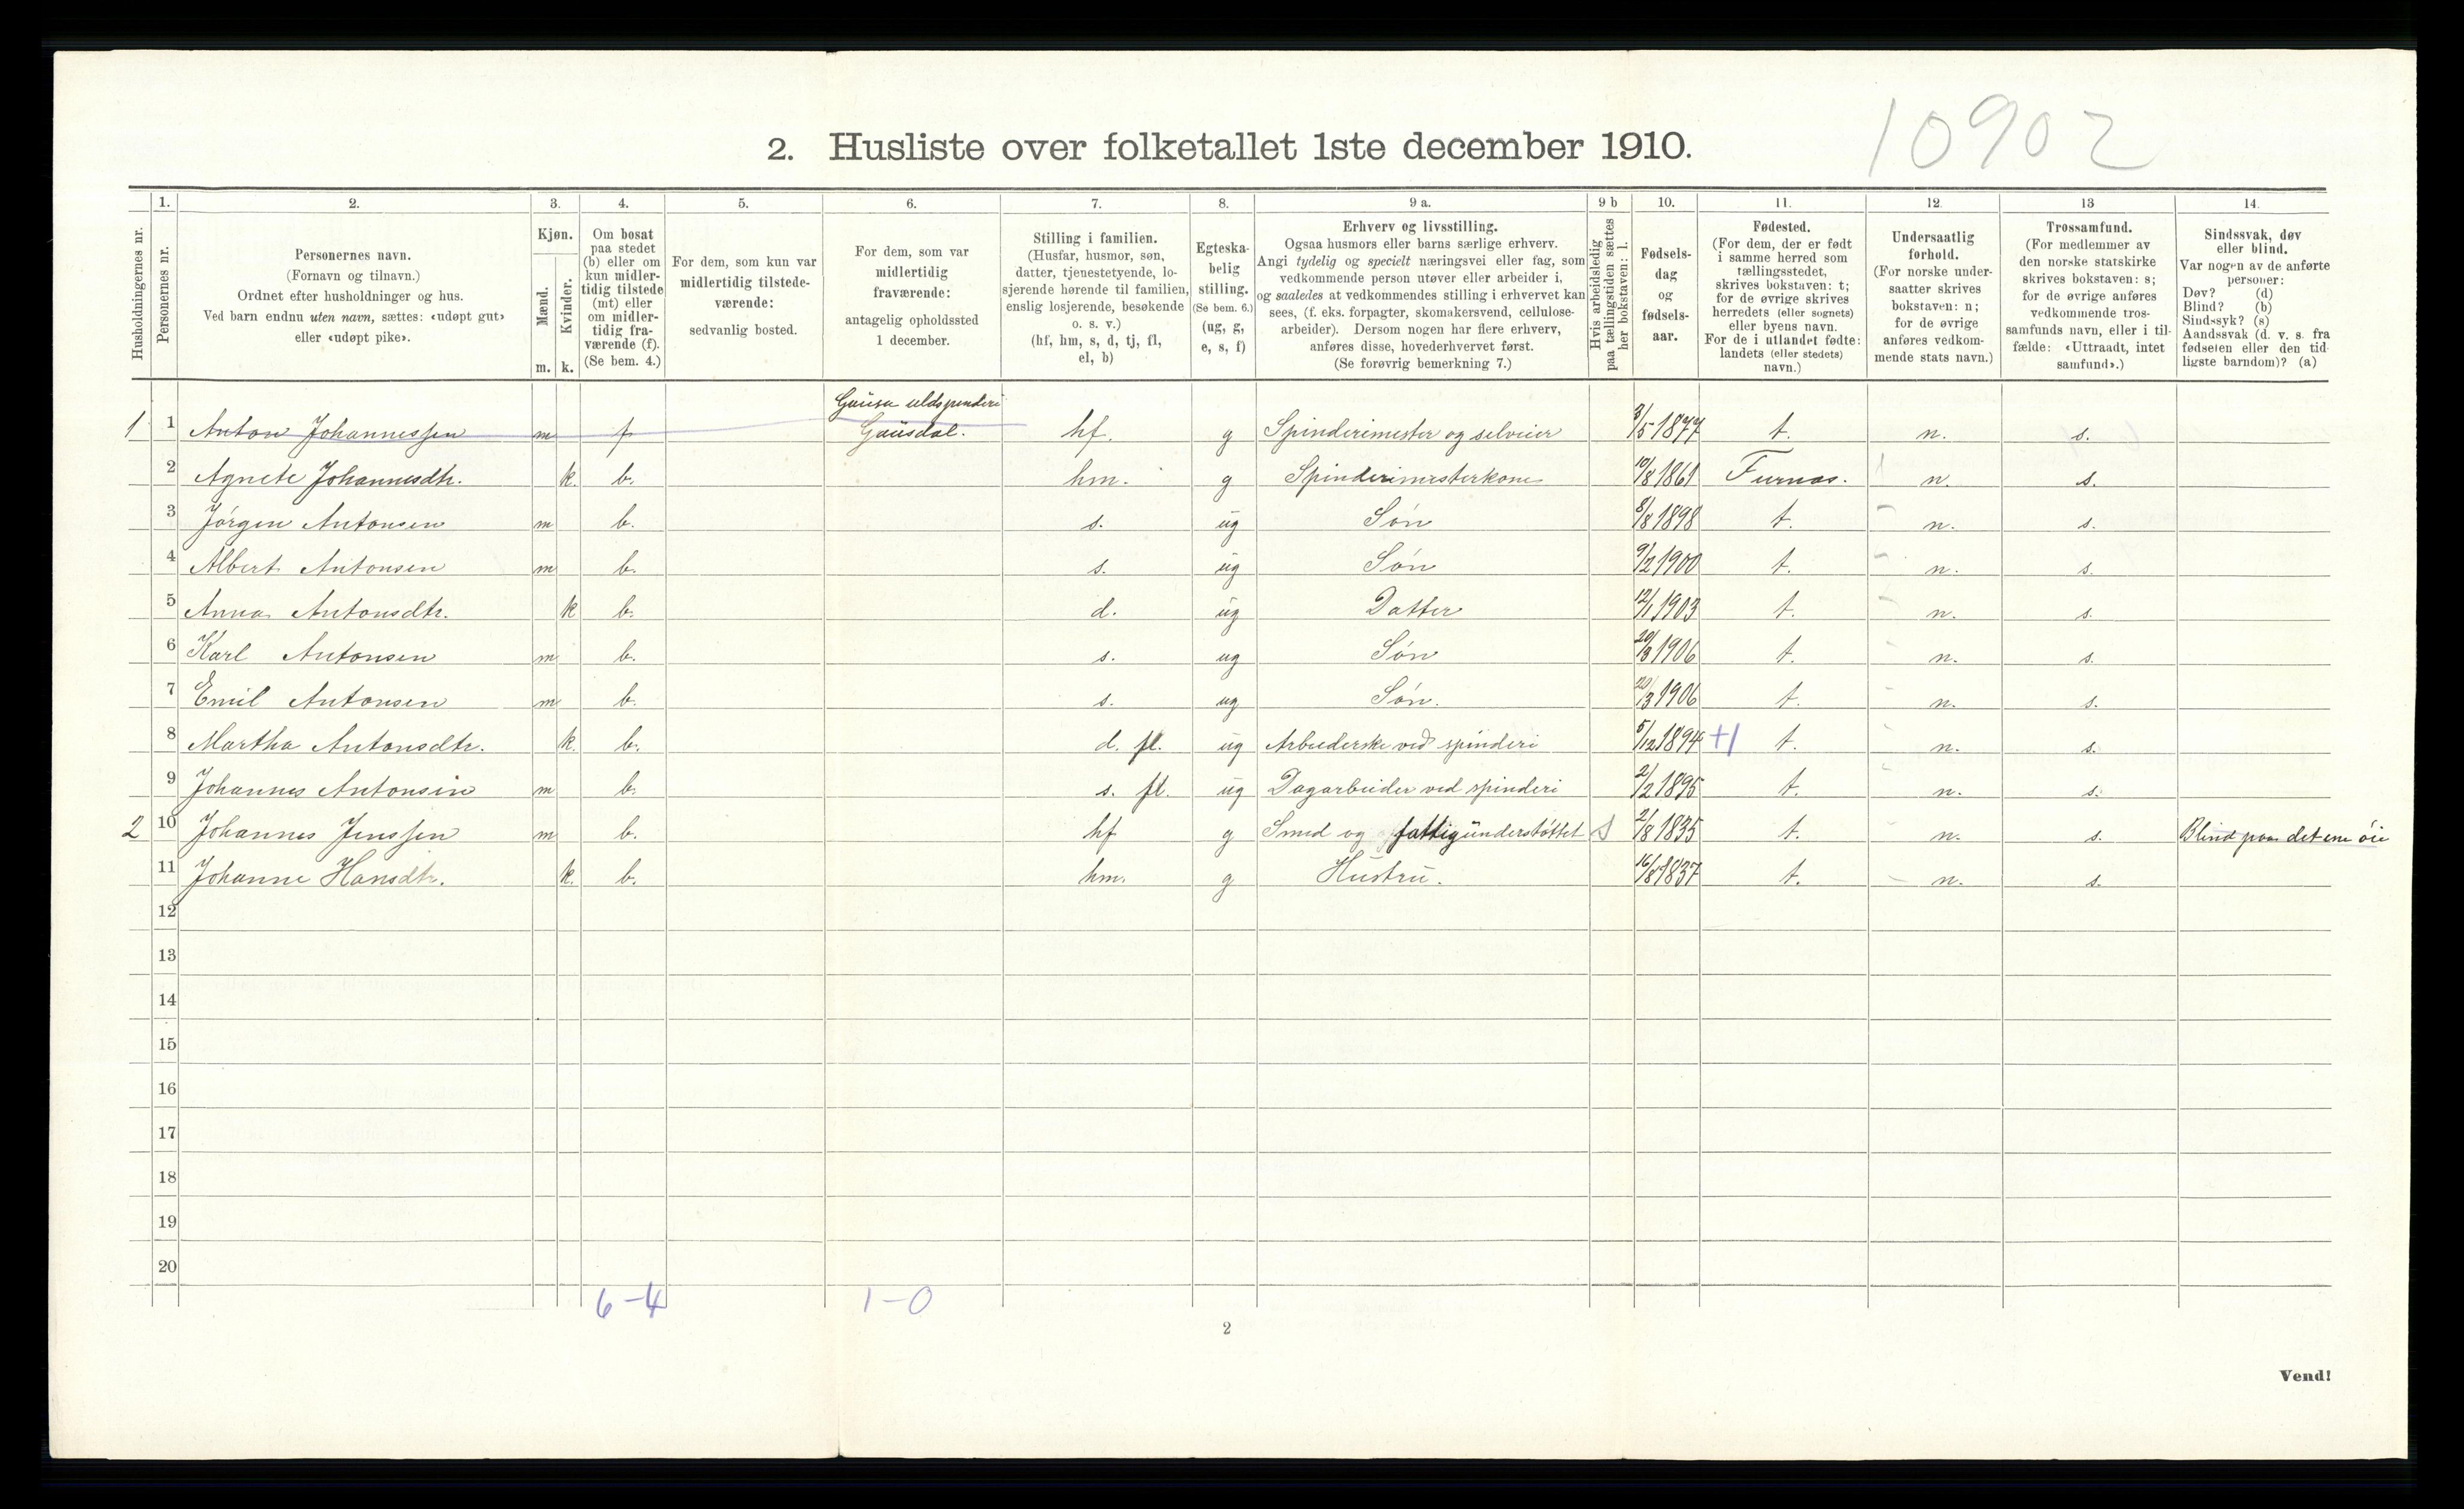 10902
2. Husliste over folketallet 1ste december 1910.
1. 2. 3. 4. 5. 6. 7. 8. 9 a. 9 b 10. 11. 12. 13 14.
Husholdningernes nr.
Personernes nr.
Personernes navn.
(Fornavn og tilnavn.)
Ordnet efter husholdninger og hus.
Ved barn endnu uten navn, sættes: «udøpt gut»
eller «udøpt pike».
Kjøn.
Mænd.
Kvinder.
m. k.
Om bosat
paa stedet
(b) eller om
kun midler-
tidig tilstede
(mt) eller
om midler-
tidig fra-
værende (f).
(Se bem. 4.)
For dem, som kun var
midlertidig tilstede-
værende:
sedvanlig bosted.
For dem, som var
midlertidig
fraværende:
antagelig opholdssted
1 december.
Stilling i familien.
(Husfar, husmor, søn,
datter, tjenestetyende, lo-
sjerende hørende til familien,
enslig losjerende, besøkende
o. s. v.)
(hf, hm, s, d, tj, fl,
el, b)
Egteska-
belig
stilling.
(Se bem. 6.)
(ug, g,
e, s, f)
Erhverv og livsstilling.
Ogsaa husmors eller barns særlige erhverv.
Angi tydelig og specielt næringsvei eller fag, som
vedkommende person utøver eller arbeider i,
og saaledes at vedkommendes stilling i erhvervet kan
sees, (f. eks. forpagter, skomakersvend, cellulose-
arbeider). Dersom nogen har flere erhverv,
anføres disse, hovederhvervet først.
(Se forøvrig bemerkning 7.)
Hvis arbeidsledig
paa tællingstiden sættes
her bokstaven: l.
Fødsels-
dag
og
fødsels-
aar.
Fødested.
(For dem, der er født
i samme herred som
tællingsstedet,
skrives bokstaven: t;
for de øvrige skrives
herredets (eller sognets)
eller byens navn.
For de i utlandet fødte:
landets (eller stedets)
navn.)
Undersaatlig
forhold.
(For norske under-
saatter skrives
bokstaven: n;
for de øvrige
anføres vedkom-
mende stats navn.)
Trossamfund.
(For medlemmer av
den norske statskirke
skrives bokstaven: s;
for de øvrige anføres
vedkommende tros-
samfunds navn, eller i til-
fælde: «Uttraadt, intet
samfund».)
Sindssvak, døv
eller blind.
Var nogen av de anførte
personer:
Døv? (d)
Blind? (b)
Sindssyk? (s)
Aandssvak (d. v. s. fra
fødselen eller den tid-
ligste barndom)? (a)
Gausa uldspinderi
1 1 Anton Johannessen m f Gausdal. hf. g Spinderimester og selveier 3/5 1877 t. n. s.
2 Agnete Johannesdtr. k. b. hm. g Spinderimesterkone 10/8 1861 Furnæs. n. s.
3 Jørgen Antonsen m b. s. ug Søn 8/8 1898 t. n. s.
4 Albert Antonsen m b. s. ug Søn 9/2 1900 t. n. s.
5 Anna Antonsdtr. k b. d. ug Datter 12/1 1903 t. n. s.
6 Karl Antonsen m b. s. ug Søn 20/3 1906 t. n. s.
7 Emil Antonsen m b. s. ug Søn. 20/3 1906 t. n. s.
8 Martha Antonsdtr. k. b. d. fl. ug Arbeiderske ved spinderi 5/12 1894 +1 t. n. s.
9 Johannes Antonsen m b. s. fl. ug Dagarbeider ved spinderi 2/2 1895 t. n. s.
2 10 Johannes Jenssen m b. hf g Smed og fattigunderstøttet 2/8 1835 t. n. s. Blind paa det ene øie
11 Johanne Hansdtr. k. b. hm. g Hustru. 16/8 1837 t. n. s.
12
13
14
15
16
17
18
19
20
6-4 1-0
2
Vend!